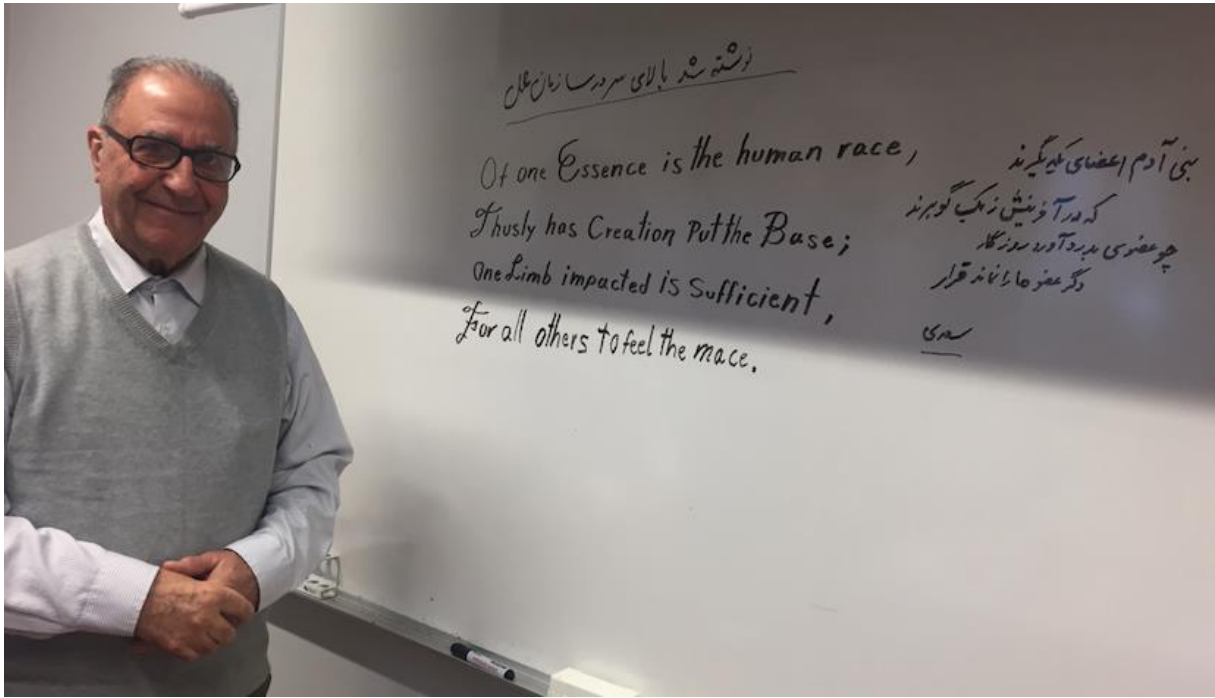 نوشته شد بالای سر در سازمان ملل
Of one Essence is the human race,
Thusly has Creation Put the Base;
One Limb impacted is Sufficient,
For all others to feel the mace.
بنی آدم اعضای یکدیگرند
که در آفرینش ز یک گوهرند
چو عضوی بدرد آورد روزگار
دگر عضو ها را نماند قرار
سعدی